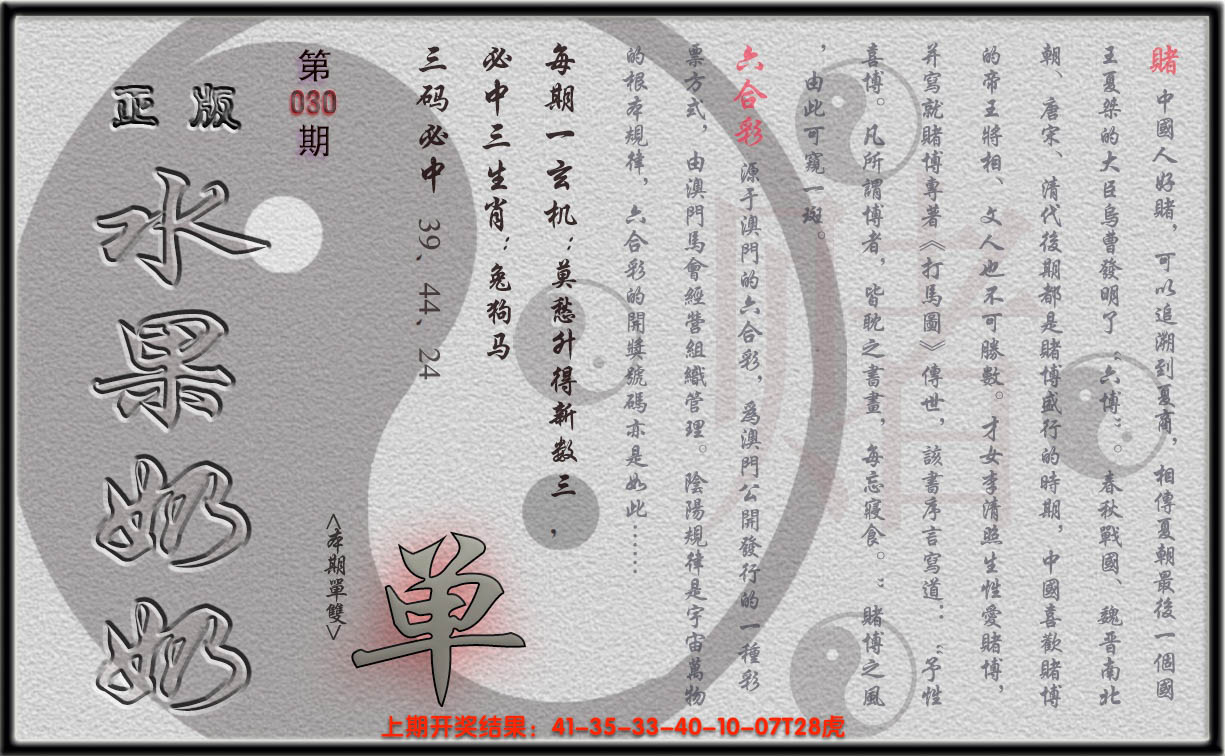 賭 中國人好賭，可以追溯到夏商，相傳夏朝最後一個國
王夏桀的大臣烏曹發明了“六博”。春秋戰國、魏晋南北
朝、唐宋、清代後期都是賭博盛行的時期，中國喜歡賭博
的帝王將相、文人也不可勝數。才女李清照生性愛賭博，
并寫就賭博專著《打馬圖》傳世，該書序言寫道：“予性
喜博。凡所謂博者，皆耽之書畫，每忘寢食。”賭博之風
，由此可窺一斑。
六合彩 源于澳門的六合彩，爲澳門公開發行的一種彩
票方式，由澳門馬會經營組織管理。陰陽規律是宇宙萬物
的根本規律，六合彩的開獎號碼亦是如此……
每期一玄机：莫愁升得新数三，
必中三生肖：兔狗马
三码必中 39、44、24
第
030
期
<本期單雙>
单
正版
水果奶奶
赌
上期开奖结果：41-35-33-40-10-07T28虎